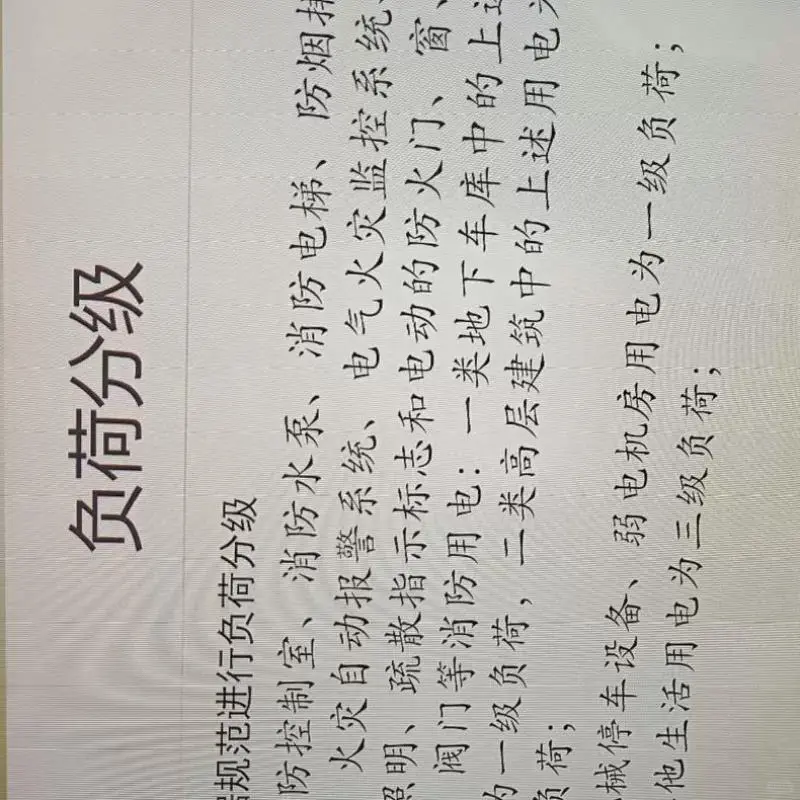 负荷分级
规范进行负荷分级
防控制室、消防水泵、消防电梯、防烟排
火灾自动报警系统、电气火灾监控系统、
照明、疏散指示标志和电动的防火门、窗、
阀门等消防用电：一类地下车库中的上述
为一级负荷，二类高层建筑中的上述用电为
负荷；
械停车设备、弱电机房用电为一级负荷；
他生活用电为三级负荷；